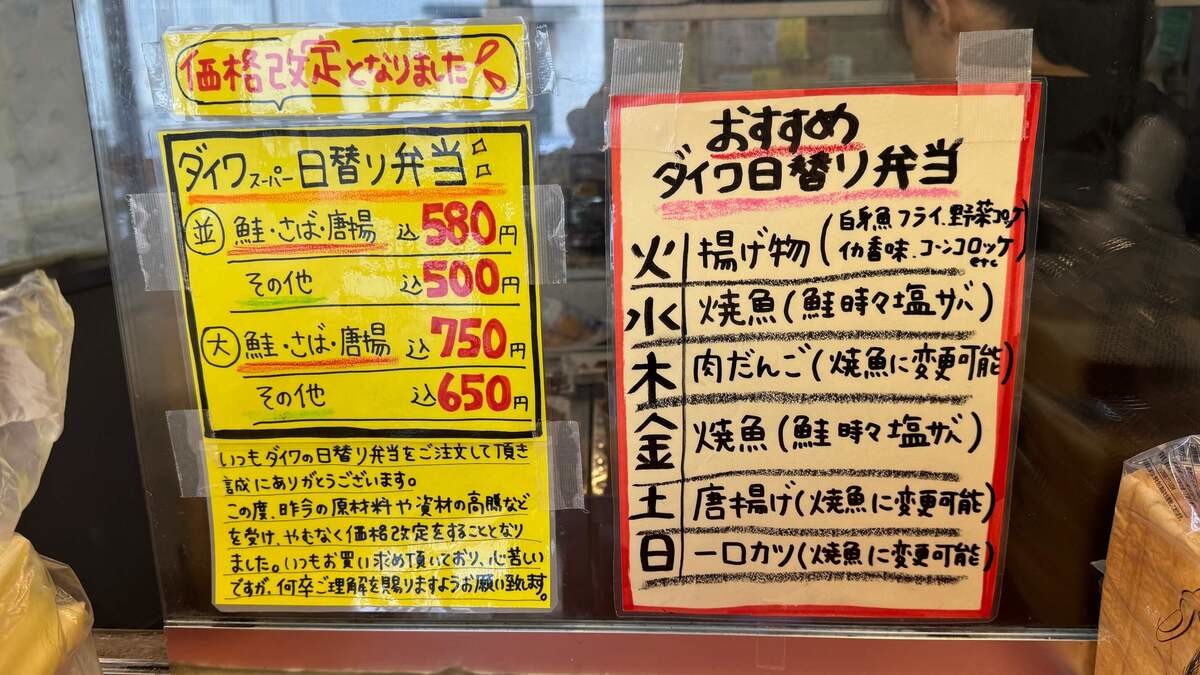 価格改定となりました
ダイワスーパー日替り弁当
並 鮭・さば・唐揚 込580円
その他 込500円
大 鮭・さば・唐揚 込750円
その他 込650円
いつもダイワの日替り弁当をご注文して頂き
誠にありがとうございます。
この度、昨今の原材料や資材の高騰など
を受け、やむなく価格改定をすることとなり
ました。いつもお買い求め頂いており、心苦しい
ですが、何卒ご理解を賜りますようお願い致します。
おすすめ
ダイワ日替り弁当
火 揚げ物(白身魚フライ、野菜コロッケ
イカ香味、コーンコロッケ
etc)
水 焼魚(鮭時々塩サバ)
木 肉だんご(焼魚に変更可能)
金 焼魚(鮭時々塩サバ)
土 唐揚げ(焼魚に変更可能)
日 一口カツ(焼魚に変更可能)